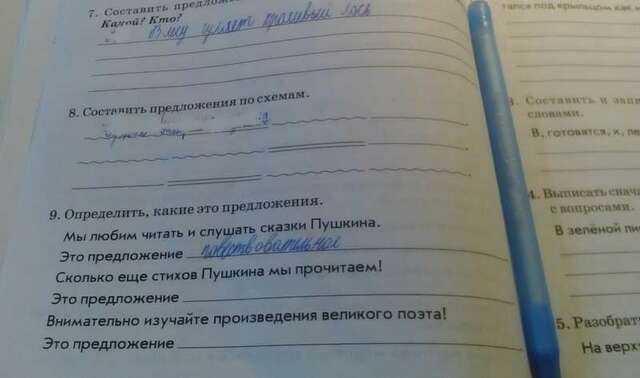 7. Составить предложе
Какой? Кто?
В лесу гуляет красивый лось
8. Составить предложения по схемам.
9. Определить, какие это предложения.
Мы любим читать и слушать сказки Пушкина.
Это предложение повествовательное
Сколько еще стихов Пушкина мы прочитаем!
Это предложение
Внимательно изучайте произведения великого поэта!
Это предложение
тался под крыльцом как
3. Составить и запи
словами.
В, готовятся, к, ле
4. Выписать снача
с вопросами.
В зелёной
5. Разобрат
На верх